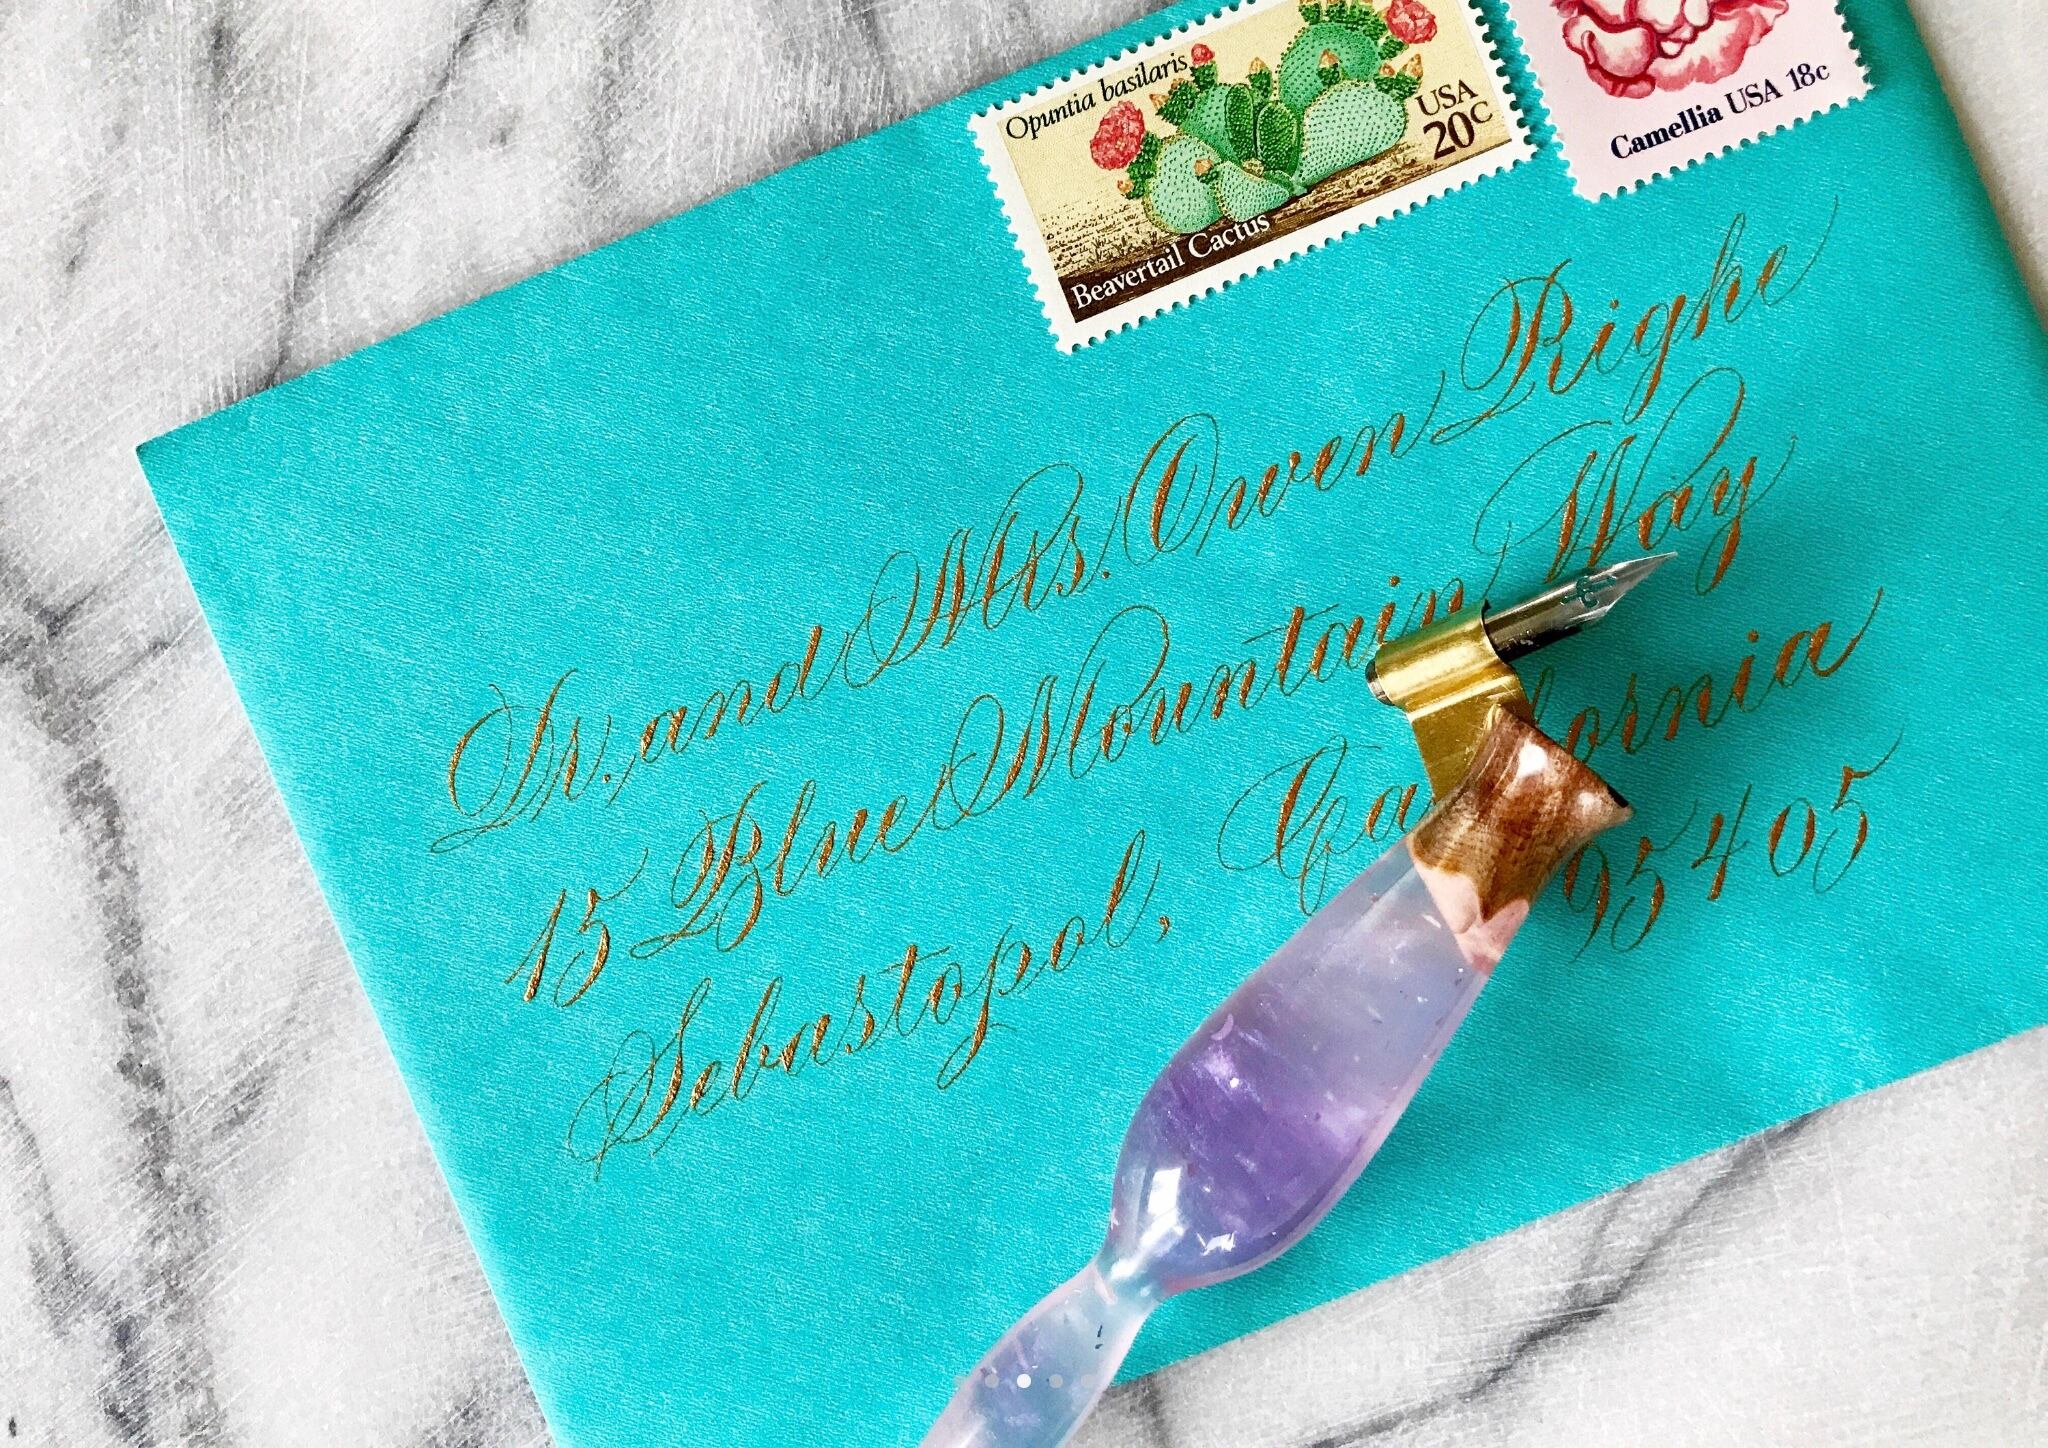 Opuntia basilaris
USA
20c
Beavertail Cactus
Camellia USA 18c
Dr. and Mrs. Owen Righe
15 Blue Mountain Way
Sebastopol, California
95405